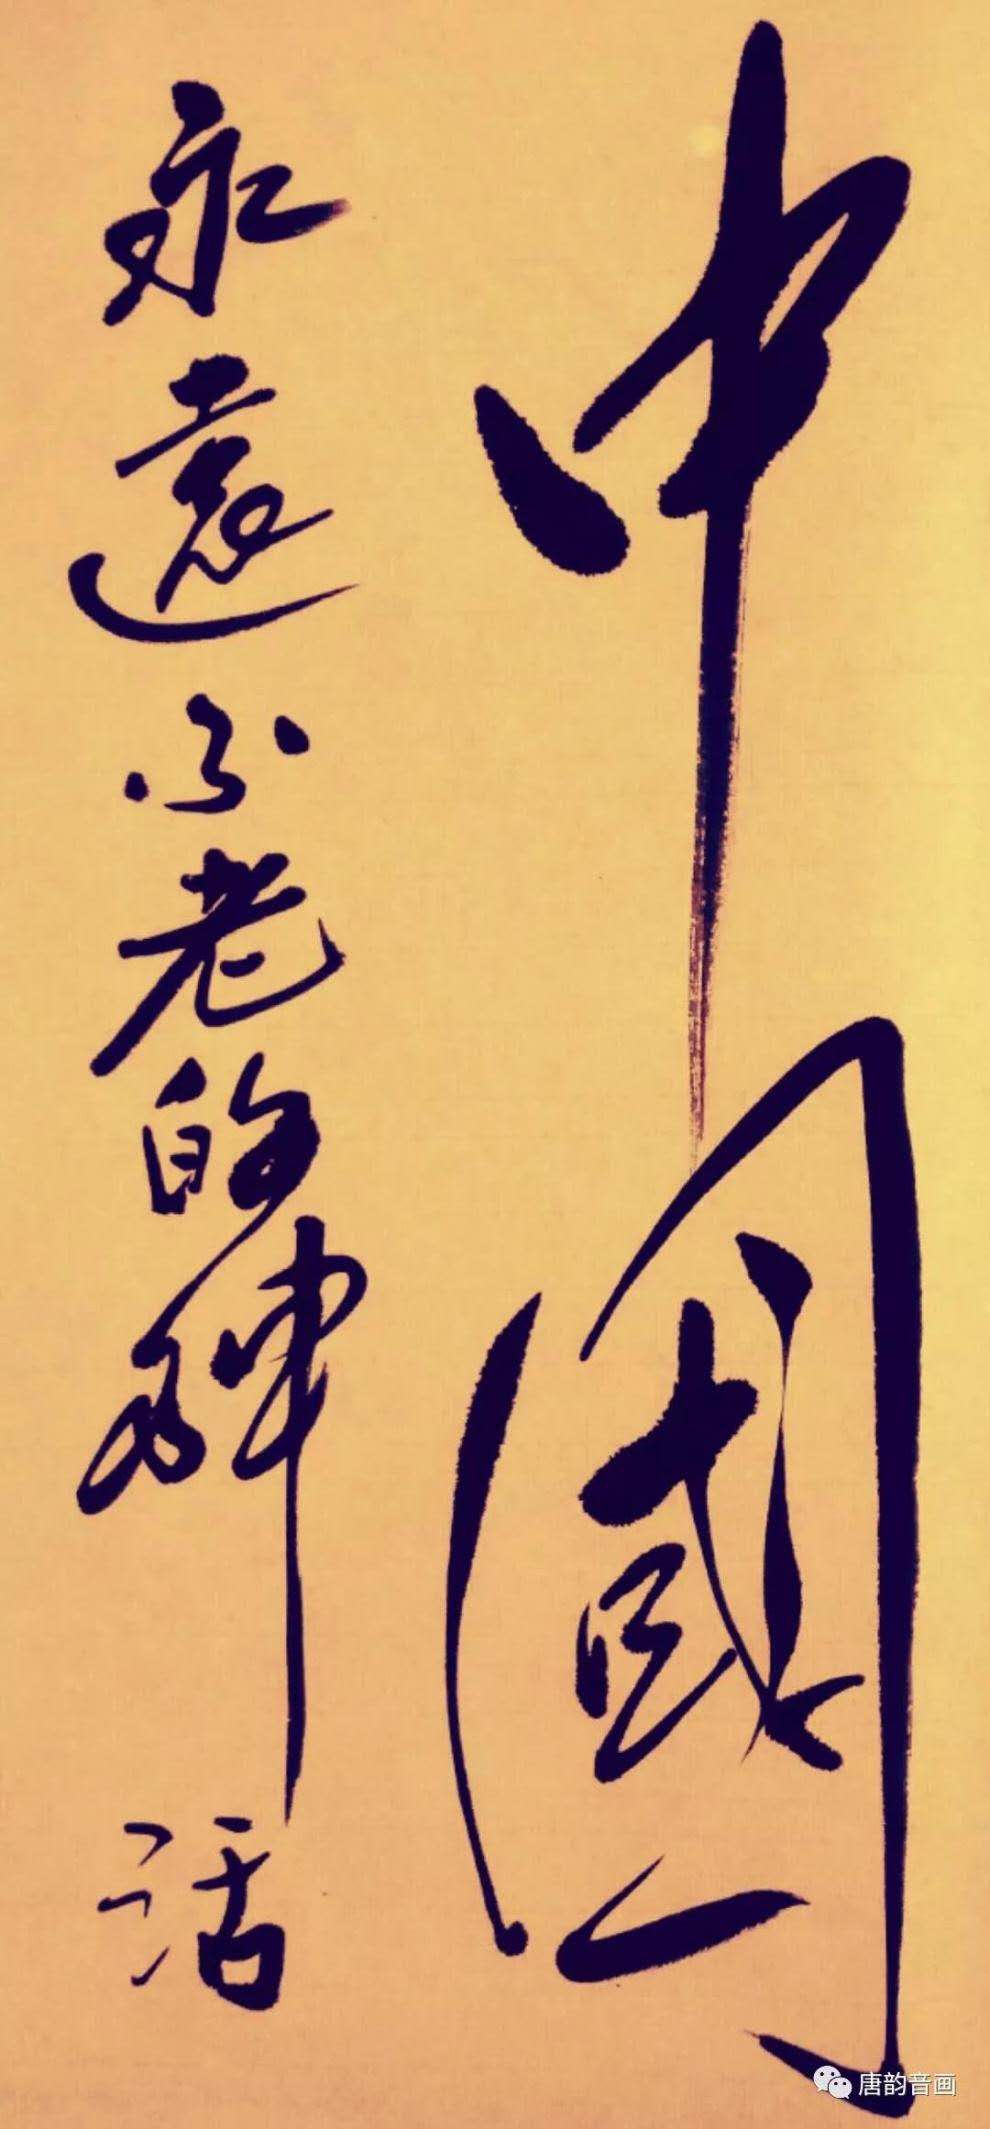 中國
永遠不老的神話
唐韵音画